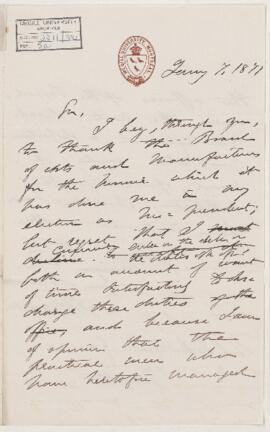 McGILL UNIVERSITY
ARCHIVES
McGILL UNIVERSITY, MONTREAL
Jany 7, 1871
Sir,
I beg, through you,
to thank the Board
of Arts and Manufactures
for the honour which it
has done me in my
election as President;
but regret that I
both on account of want
of time
charge the duties of the
office and because I am
of opinion that the
practical men who
have heretofore managed